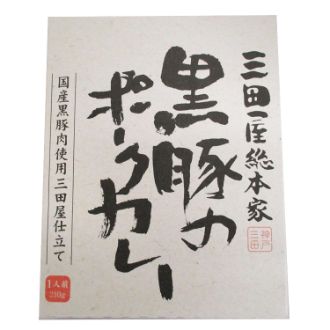 三田屋総本家
黒豚の
ポークカレー
国産黒豚肉使用三田屋仕立て
神戸
三田
1人前
210g